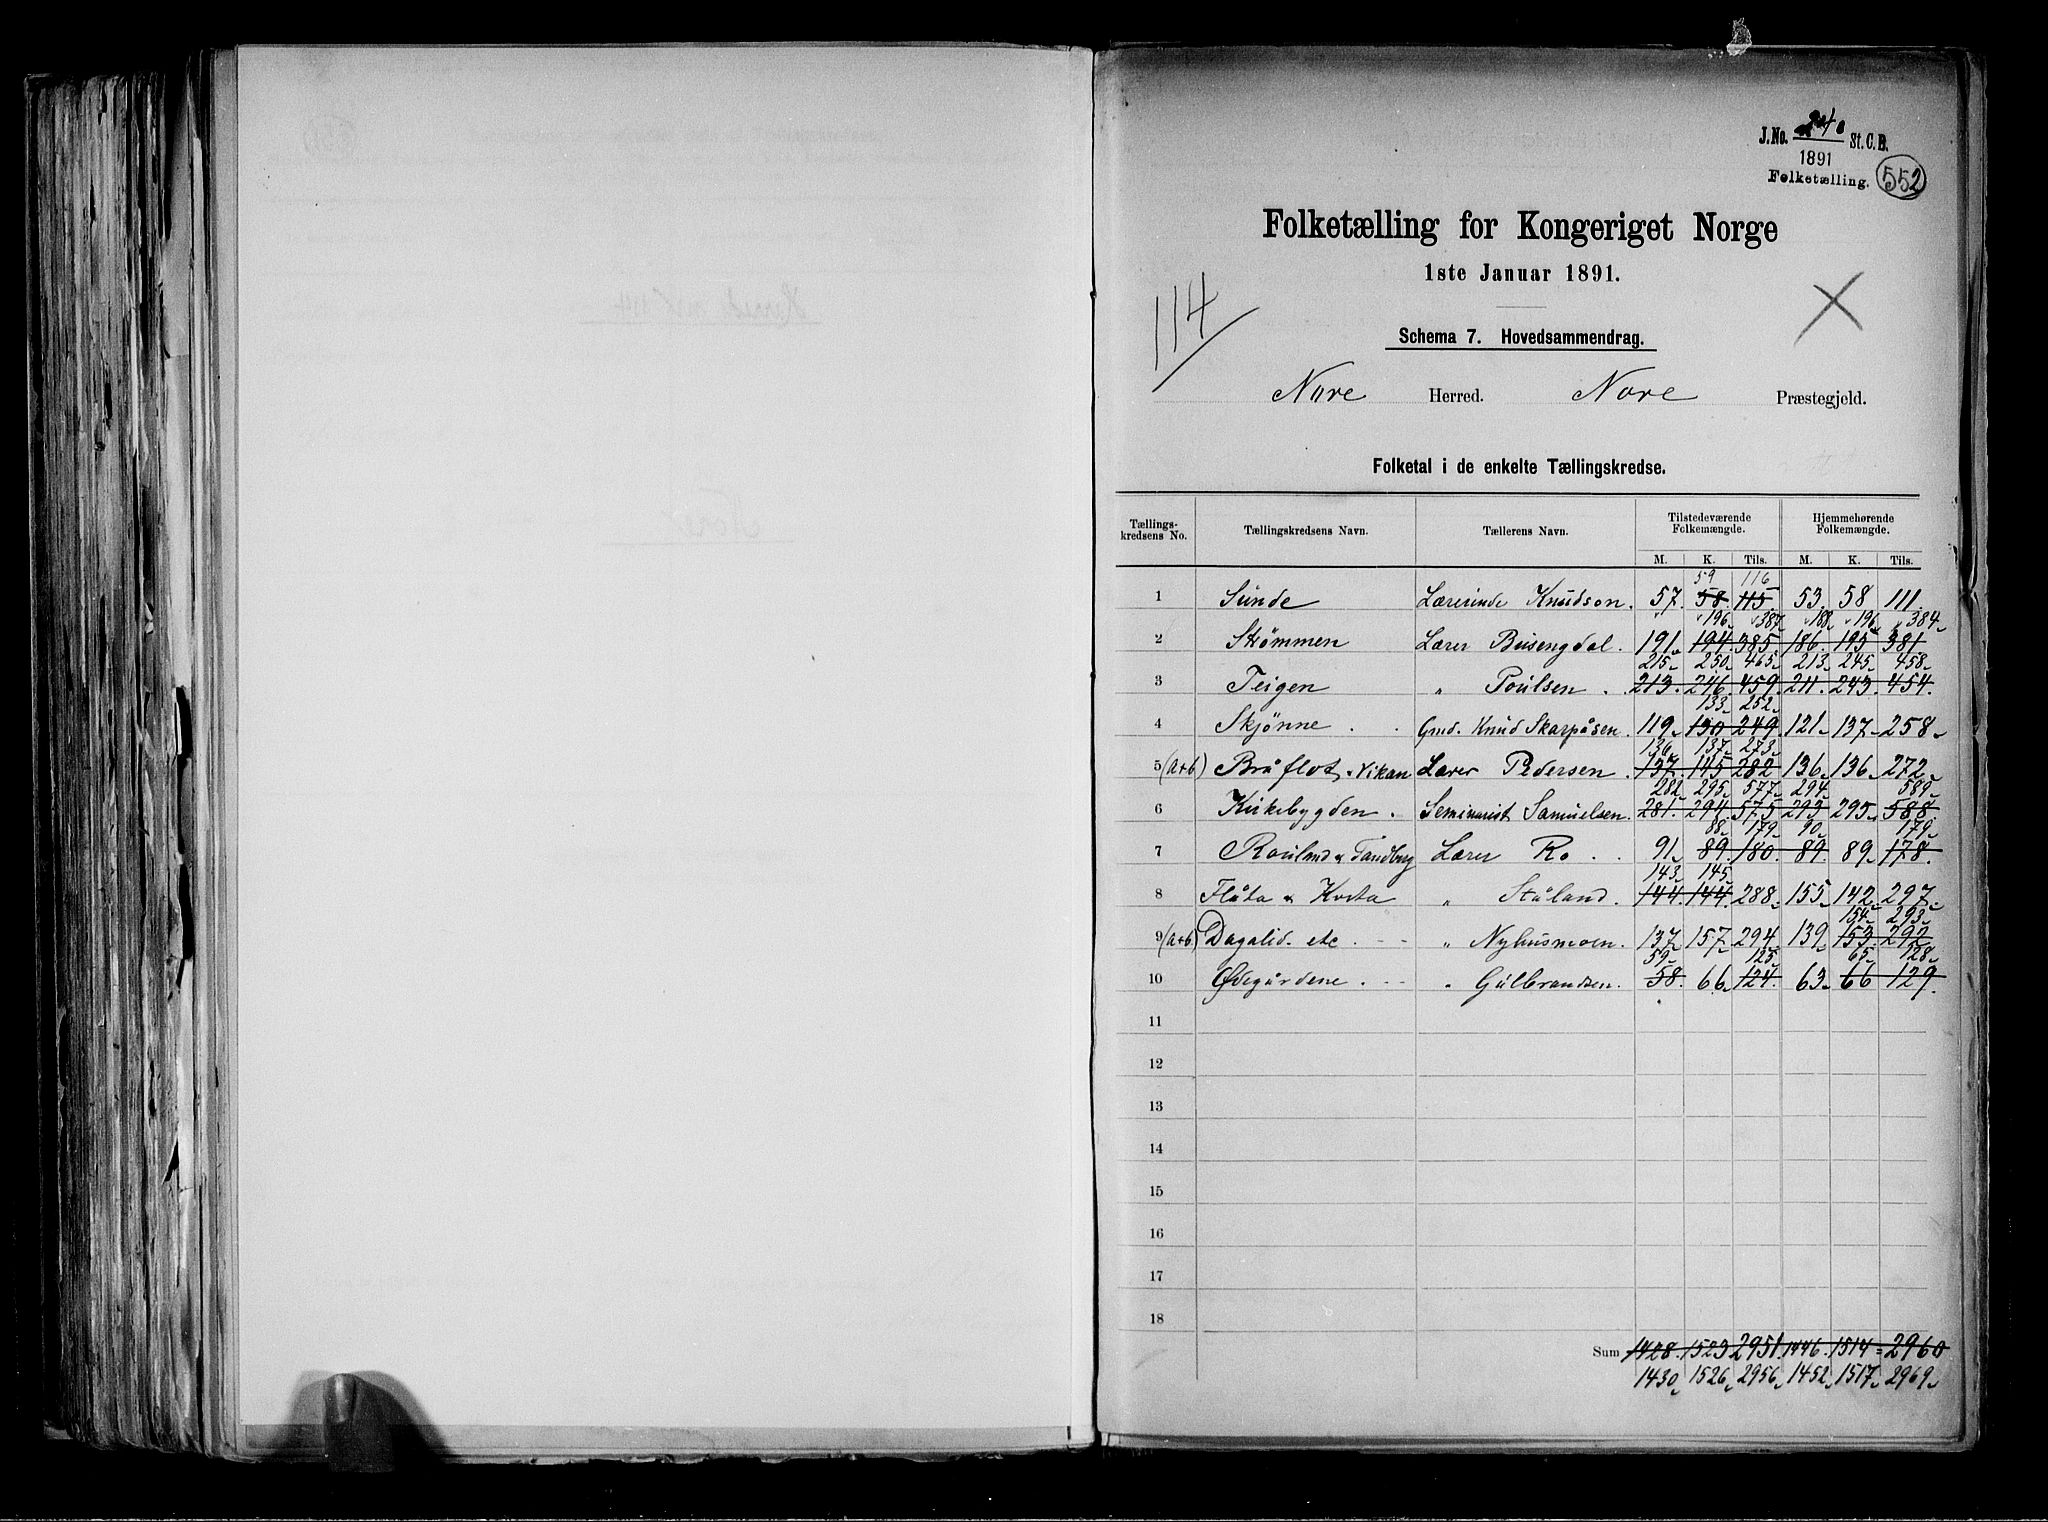 J. No. 240 St. C. B.
1891
Folketælling. 552
Folketælling for Kongeriget Norge
1ste Januar 1891.
114
Schema 7. Hovedsammendrag.
Nore Herred. Nore Præstegjeld.
Folketal i de enkelte Tællingskredse.
Tællings-kredsens No. Tællingskredsens Navn. Tællerens Navn. Tilstedeværende Folkemængde. Hjemmehørende Folkemængde.
M. K. Tils. M. K. Tils.
59 116
1 Sunde Lærerinde Knudson. 57. 58. 115. 53. 58 111.
196 387 188 196 384
2 Strømmen Lærer Busengdal. 191 194. 385. 186. 195 381
215 250 465 213 245 458
3 Teigen " Poulsen . 213. 246. 459. 211. 243. 454.
133 252
4 Skjønne . . Gmd. Knud Skarpåsen. 119 130 249. 121 137 258
136 137 273
5 (a+b) Bråflot, Vikan Lærer Pedersen . 137. 145 282 136 136 272
282 295 577 294 589
6 Kirkebygden . Seminarist Samuelsen. 281. 294. 575 293 295 588.
88 179 90 179
7 Rouland & Tandberg Lærer Ro . . 91 89. 180. 89. 89 178.
143 145
8 Flåta & Kosta " Ståland. 144. 144. 288. 155 142 297.
154 293
9 (a+b) Dagalid. etc . - - " Nyhusmoen. 137 157 294 139 153. 292
59 125 65 128
10 Ødegårdene . - - " Gulbrandsen. 58. 66. 124. 63 66 129.
11
12
13
14
15
16
17
18
Sum 1428. 1523 2951. 1446. 1514 2960
1430 1526 2956 1452 1517 2969